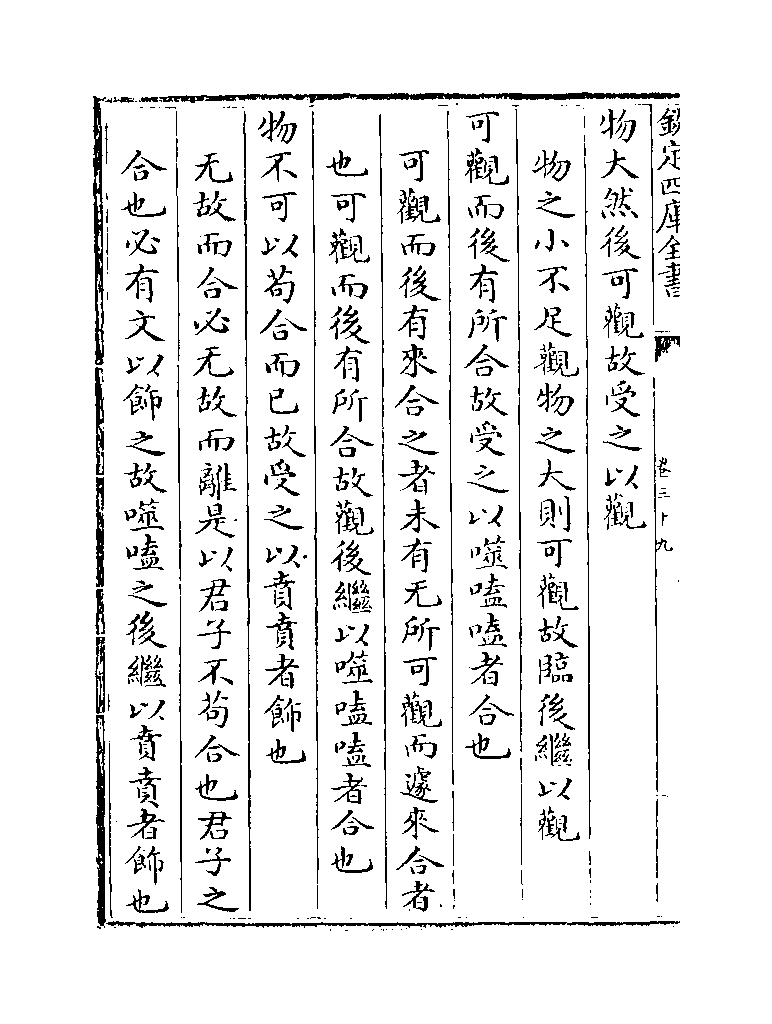 欽定四庫全書
卷三十九
物大然後可觀故受之以觀
物之小不足觀物之大則可觀故臨後繼以觀
可觀而後有所合故受之以噬嗑嗑者合也
可觀而後有來合之者未有无所可觀而遽來合者
也可觀而後有所合故觀後繼以噬嗑嗑者合也
物不可以茍合而已故受之以賁賁者飾也
无故而合必无故而離是以君子不茍合也君子之
合也必有文以飾之故噬嗑之後繼以賁賁者飾也